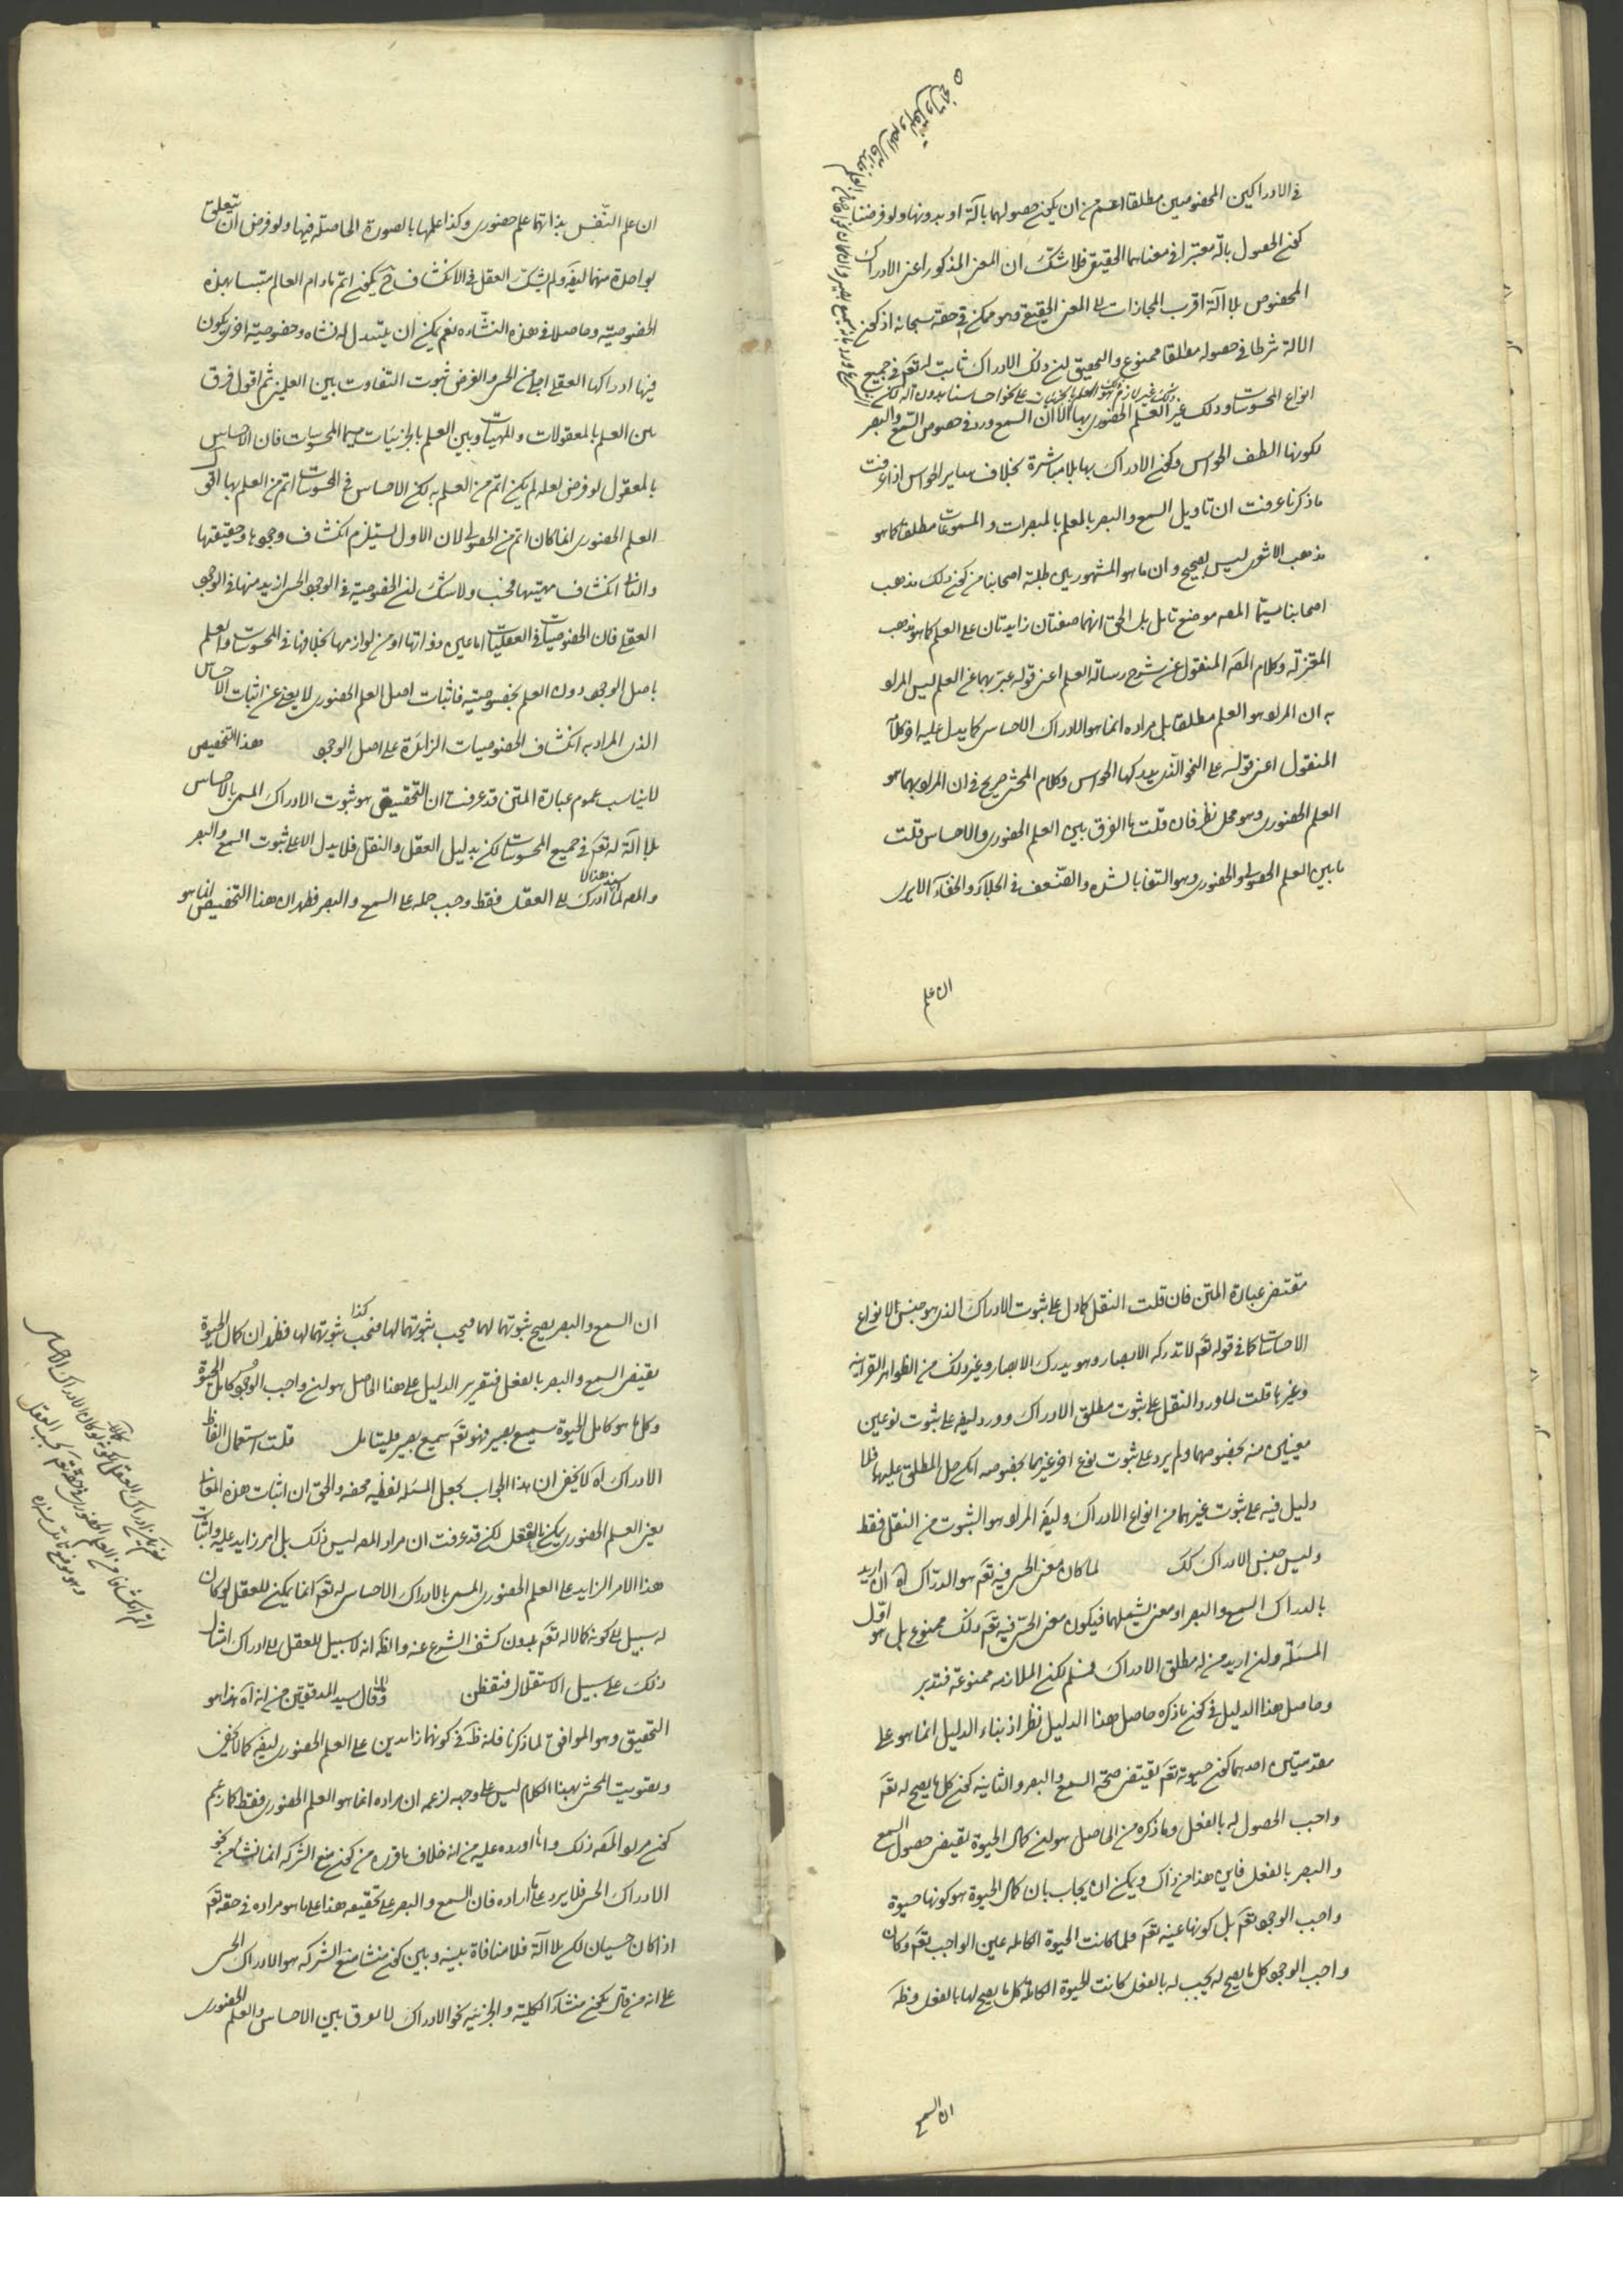 في الادراكين المخصوصين مطلقا اعم من ان يكون حصولهما بآلة او بدونها ولو فرضنا
كون الحصول بآلة معتبرا في معناهما الحقيقي فلا شك ان المعنى المذكور اعنى الادراك
المخصوص بلا آلة اقرب المجازات الى المعنى الحقيقي وهو ممكن في حقه سبحانه اذ كون
الالة شرطا في حصوله مطلقا ممنوع والتحقيق ان ذلك الادراك ثابت له تعم في جميع
انواع المحسوسات وذلك غير العلم الحضورى بها الا ان السمع ورد في خصوص السمع والبصر
لكونها الطف الحواس وكون الادراك بها بلا مباشرة بخلاف ساير الحواس اذا عرفت
ما ذكرنا عرفت ان تاويل السمع والبصر بالعلم بالمبصرات والمسموعات مطلقا كما هو
مذهب الاشعرى ليس بصحيح وان ما هو المشهور بين طلبة اصحابنا من كون ذلك مذهب
اصحابنا سيما المصه موضع تامل بل الحق انهما صفتان زايدتان على العلم كما هو مذهب
المعتزلة وكلام المصه المنقول عن شرح رسالة العلم اعنى قوله عبر بهما عن العلم ليس المراد
به ان المراد هو العلم مطلقا بل مراده انما هو الادراك الاحساسى كما يدل عليه اخر كلامه
المنقول اعنى قوله على النحو الذى يدركها الحواس وكلام المحشى صريح في ان المراد بهما هو
العلم الحضورى وهو محل نظر فان قلت ما الفرق بين العلم الحضورى والاحساس قلت
ما بين العلم الحصولى والحضورى وهو التفاوت بالشدة والضعف في الجلاء والخفاء الا يرى
ان علم
ان علم النفس بذاتها علم حضورى وكذا علمها بالصورة الحاصلة فيها ولو فرض ان يتعلق
بواحدة منهما ايضا ولم يشك العقل في الانكشاف يكون اتم ما دام العالم متلبسا بهذه
الخصوصية وحاصلا في هذه النشاءة نعم يمكن ان يتبدل له نشاه وخصوصية اخرى يكون
فيها ادراكها العقلى اجلى من الحسى والغرض ثبوت التفاوت بين العلمين ثم اقول فرق
بين العلم بالمعقولات والمهيات وبين العلم بالجزئيات سيما المحسوسات فان الاحساس
بالمعقول لو فرض لعله لم يكن اتم من العلم به لكن الاحساس في المحسوسات اتم من العلم بها اقول
العلم الحضورى انما كان اتم من الحصولى لان الاول يستلزم انكشاف وجودها وحقيقتها
والثانى انكشاف مهيتها فحسب ولا شك ان الخصوصية في الوجود الحسى ازيد منها في الوجود
العقلى فان الخصوصيات في العقليات اما عين ذواتها او من لوازمها بخلافها في المحسوسات والعلم
باصل الوجود دون العلم بخصوصيته فاثبات اصل العلم الحضورى لا يغنى عن اثبات الاحساس
الذى المراد به انكشاف الخصوصيات الزائدة على اصل الوجود هذا التخصيص
لا يناسب عموم عبارة المتن قد عرفت ان التحقيق هو ثبوت الادراك المسمى بالاحساس
بلا آلة له تعم في جميع المحسوسات لكن بدليل العقل والنقل فلا يدل الا على ثبوت السمع والبصر
والمصه لما ادرك على العقل فقط وجب حمله على السمع والبصر فظهر ان هذا التخصيص انما هو
مقتضى عبارة المتن فان قلت النقل كما دل على ثبوت الادراك الذى هو جنس الانواع
الاحساسات كما في قوله تعم لا تدركه الابصار وهو يدرك الابصار وغير ذلك من الظواهر القرآنية
وغيرها قلت لما ورد النقل على ثبوت مطلق الادراك وورد ايضا على ثبوت نوعين
معينين منه بخصوصهما ولم يرد على ثبوت نوع اخر غيرهما بخصوصه امكن حمل المطلق عليهما فلا
دليل فيه على ثبوت غيرهما من انواع الادراك وايضا المراد هو الثبوت من النقل فقط
وليس جنس الادراك كك لما كان معنى الحس فيه تعم هو الدراك اه ان اريد
بالدراك السمع والبصر او معنى يشملهما فيكون معنى الحس فيه تعم ذلك ممنوع بل هو اول
المسئلة وان اريد من له مطلق الادراك فمسلم لكن الملازمة ممنوعة فتدبر
وحاصل هذا الدليل في كون ما ذكره حاصل هذا الدليل نظر اذ بناء الدليل انما هو على
مقدمتين احدهما كون حيوته تعم يقتضى صحة السمع والبصر والثانية كون كل ما يصح له تعم
واجب الحصول له بالفعل وما ذكره من الحاصل هو ان كمال الحيوة يقتضى حصول السمع
والبصر بالفعل فاين هذا من ذاك ويمكن ان يجاب بان كمال الحيوة هو كونها حيوة
واجب الوجود تعم بل كونها عينه تعم فلما كانت الحيوة الكاملة عين الواجب تعم وكان
واجب الوجود كل ما يصح له يجب له بالفعل كانت الحيوة الكاملة كل ما يصح لها بالفعل وظه
ان السمع
ان السمع والبصر يصح ثبوتهما لهما فيجب ثبوتهما لها فيجب ثبوتهما لها فظهر ان كمال الحيوة
يقتضى السمع والبصر بالفعل فتقرير الدليل على هذا الحاصل هو ان واجب الوجود كامل الحيوة
وكل ما هو كامل الحيوة سميع بصير فهو تعم سميع بصير فليتامل قلت استعمال الفاظ
الادراك اه لا يخفى ان هذا الجواب يجعل المسئلة لفظية محضه والحق ان اثبات هذه المعانى
يعنى العلم الحضورى يمكن بالعقل لكن قد عرفت ان مراد المصه ليس ذلك بل امر زايد عليه واثبات
هذا الامر الزايد على العلم الحضورى المسمى بالادراك الاحساسى له تعم انما يمكن للعقل لو كان
له سبيل الى كونه كمالا له تعم بدون كشف الشرع عنه والظه انه لا سبيل للعقل الى ادراك امثال
ذلك على سبيل الاستقلال فتفطن وقال سيد المدققين من انه آه هذا هو
التحقيق وهو الموافق لما ذكرنا فانه ظه في كونهما زائدين على العلم الحضورى ايضا كما لا يخفى
وتقويت المحشى بهذا الكلام ليس على وجهه لزعمه ان مراده انما هو العلم الحضورى فقط كما زعم
كون مراد المصه ذلك واما ما اورده عليه من انه خلاف ما قرره من كون منع الشركة انما نشاء من نحو
الادراك الحسى فلا يرد على ما اراده فان السمع والبصر على تحقيقه هذا على ما هو مراده في حقه تعم
اذا كان حسيان لكن بلا آلة فلا منافاة بينه وبين كون منشأ منع الشركة هو الادراك الحسى
على انه من قال بكون منشأ الكلية والجزئية نحو الادراك لا يفرق بين الاحساس والعلم الحضورى